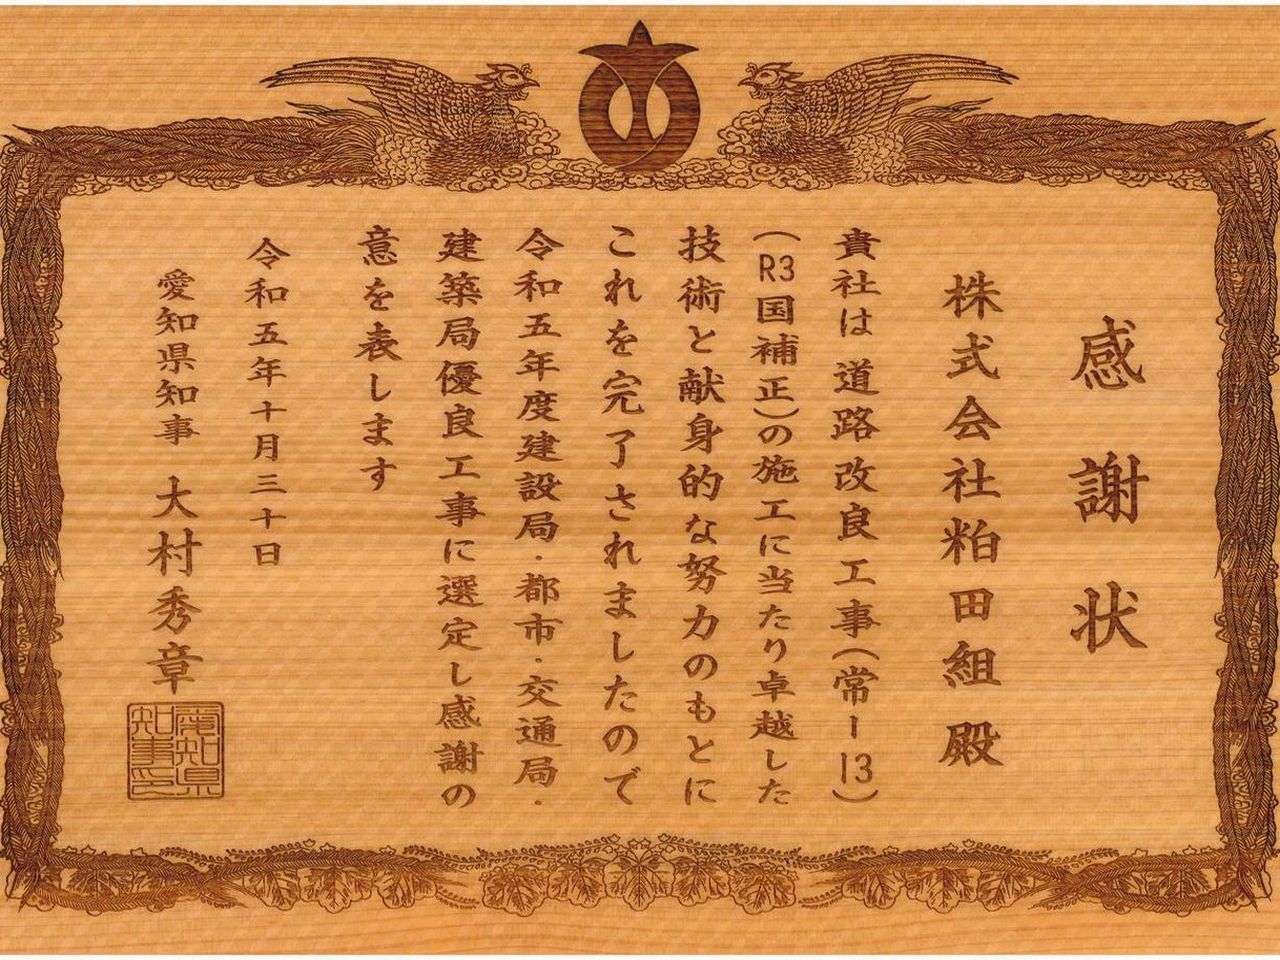 感謝状
株式会社粕田組 殿
貴社は道路改良工事(常ー13)
(R3国補正)の施工に当たり卓越した
技術と献身的な努力のもとに
これを完了されましたので
令和五年度建設局・都市・交通局・
建築局優良工事に選定し感謝の
意を表します
令和五年十月三十日
愛知県知事 大村秀章
愛知県
知事之印